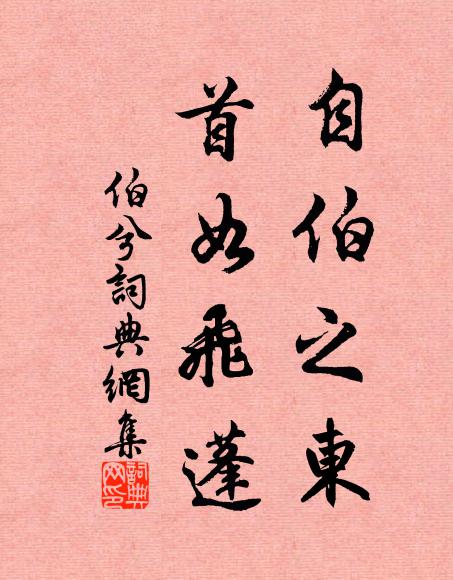 自伯之東
首如飛蓬
伯兮詞典網集
詞典網印